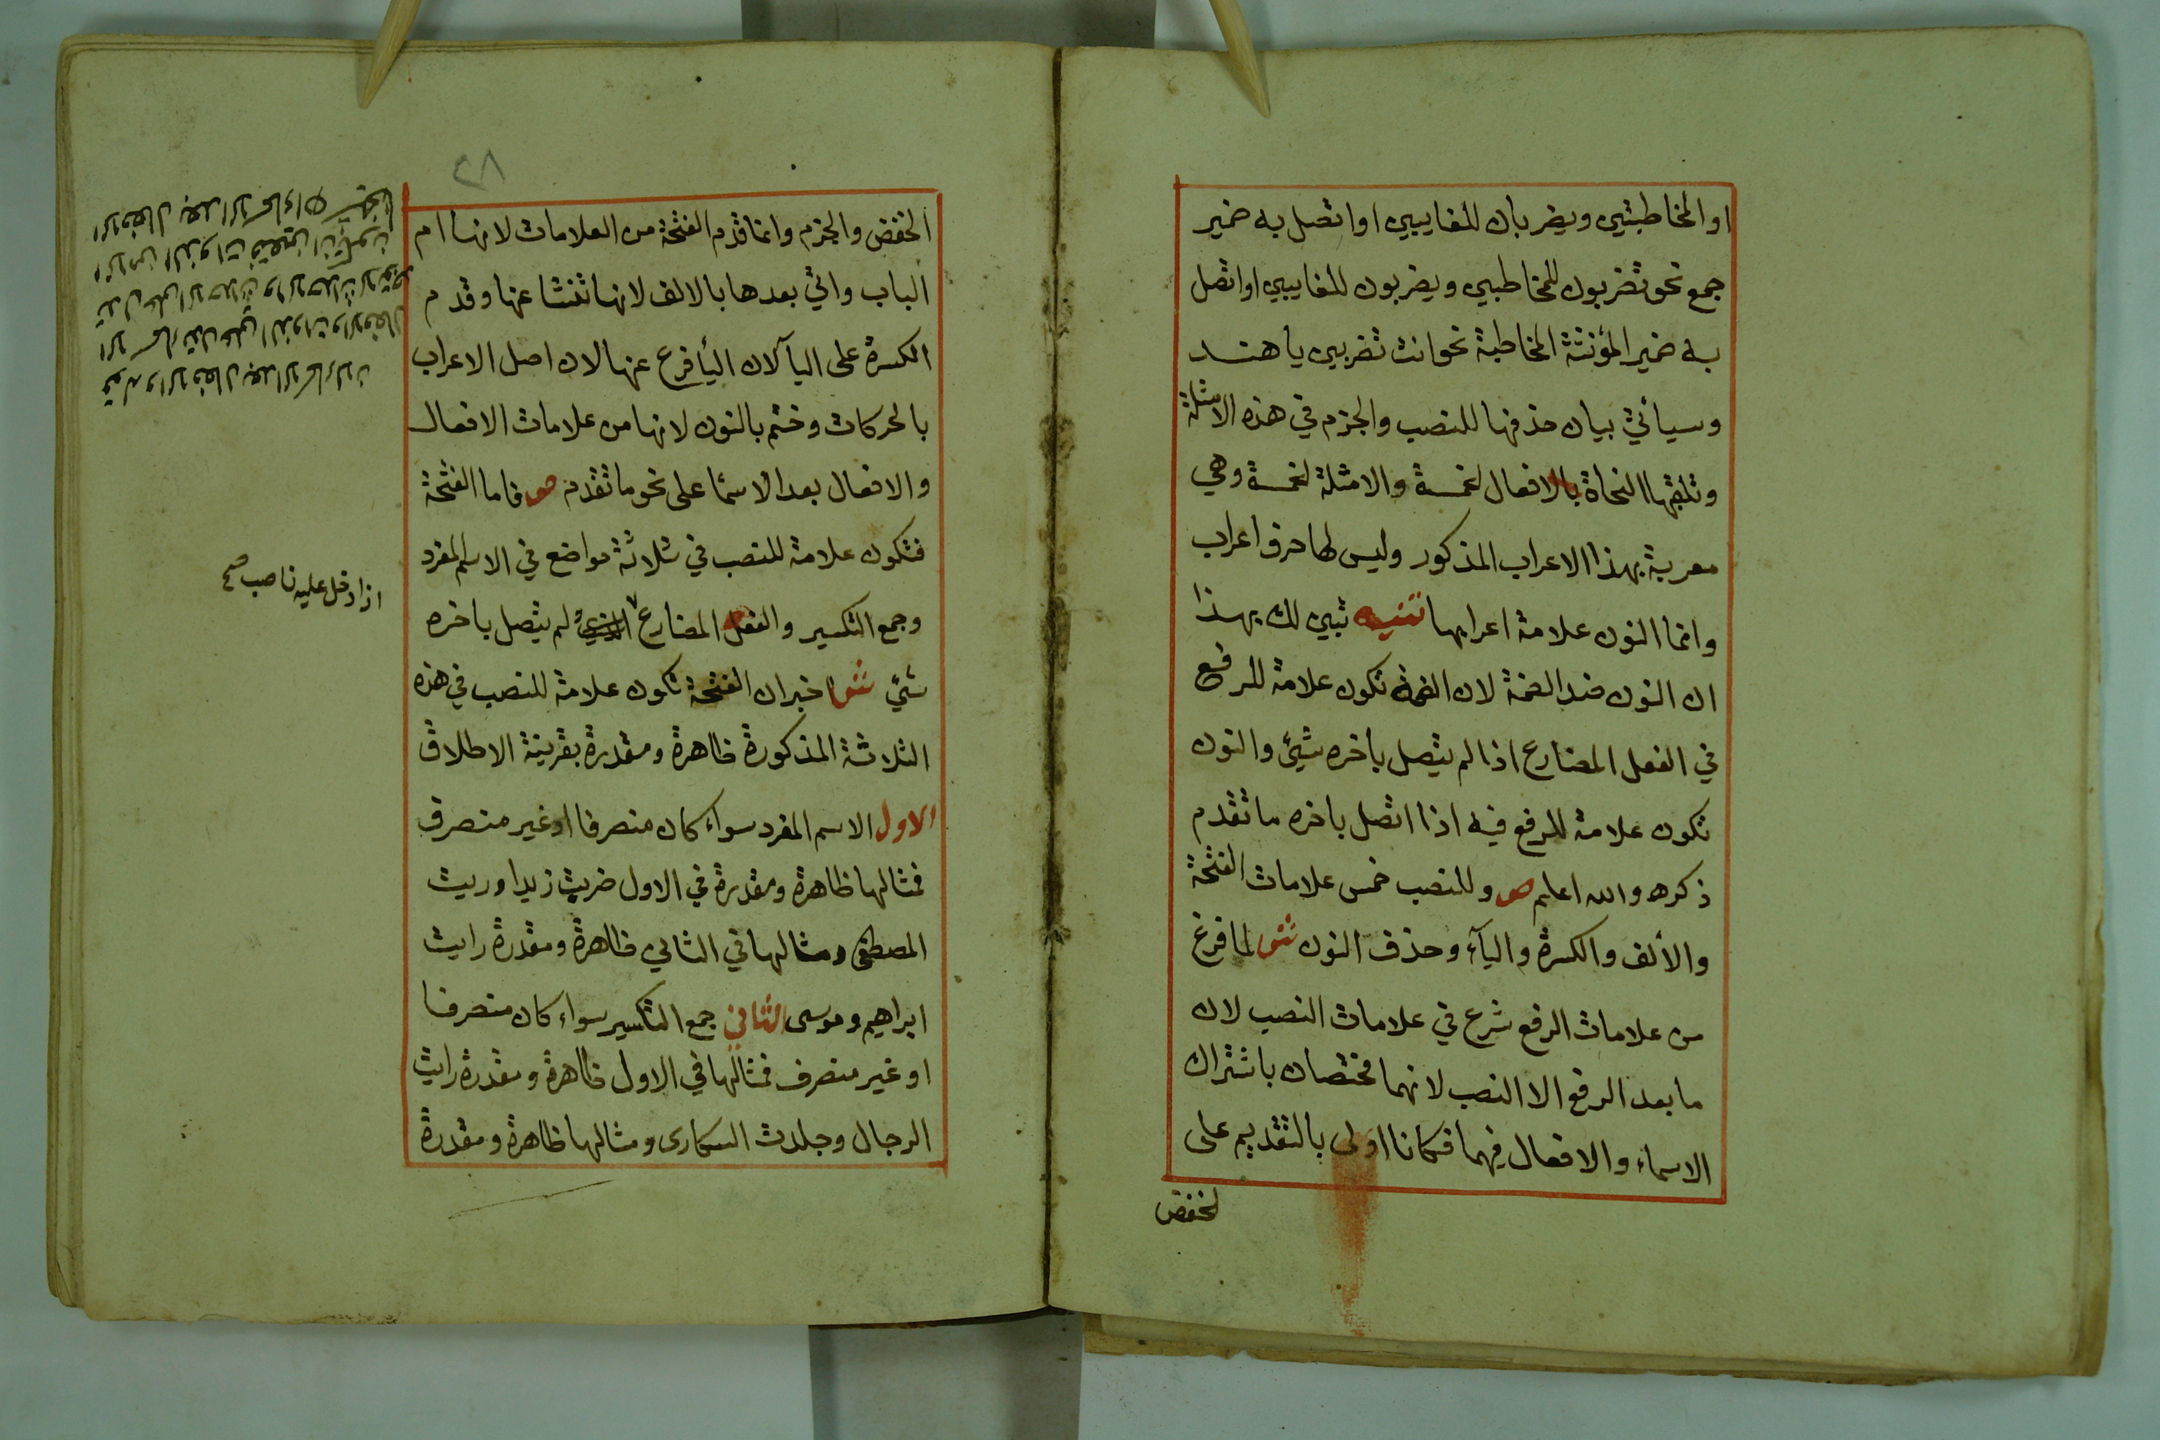 او المخاطبتين ويضربان للغايبين او اتصل به ضمير
جمع نحو تضربون للمخاطبين ويضربون للغايبين او اتصل
به ضمير المؤنثة المخاطبة نحو انت تضربين يا هند
وسيأتي بيان حذفها للنصب والجزم في هذه الامثلة
وتلقبها النحاة بالافعال لخمسة والامثلة لخمسة وهي
معربة بهذا الاعراب المذكور وليس لها حرف اعراب
وانما النون علامة اعرابها تنبيه تبين لك بهذا
ان النون ضد الضمة لان الضمة تكون علامة للرفع
في الفعل المضارع اذا لم يتصل بأخره شيئ والنون
تكون علامة للرفع فيه اذا اتصل باخره ما تقدم
ذكره والله اعلم ص وللنصب خمس علامات الفتحة
والألف والكسرة واليآء وحذف النون ش لما فرغ
من علامات الرفع شرع في علامات النصب لان
ما بعد الرفع الا النصب لانهما مختصان باشتراك
الاسماء والافعال فيهما فكانا اولى بالتقديم على
لخفض
٢٨
الخفض والجزم وانما قدم الفتحة من العلامات لانها ام
الباب واتي بعدها بالالف لانها تنشا عنها وقدم
الكسرة على اليآ لان اليأ فرع عنها لان اصل الاعراب
بالحركات وختم بالنون لانها من علامات الافعال
والافعال بعد الاسما على نحو ما تقدم ص فاما الفتحة
فتكون علامة للنصب في ثلاثة مواضع في الاسم المفرد
وجمع التكسير والفعل المضارع لم يتصل باخره
شيئ ش اخبر ان الفتحة تكون علامة للنصب في هذه
الثلاثة المذكورة ظاهرة ومقدرة بقرينة الاطلاق
الاول الاسم المفرد سواء كان منصرفا او غير منصرف
فمثالها ظاهرة ومقدرة في الاول ضربت زيدا وريت
المصطفى ومثالها في الثاني ظاهرة ومقدرة رايت
ابراهيم وموسى الثاني جمع التكسير سواء كان منصرفا
او غير منصرف فمثالها في الاول ظاهرة ومقدرة رايت
الرجال وجلدت السكارى ومثالها ظاهرة ومقدرة
قوله والافعال بعد الاسماء لان
الاسماء تدل على الذوات والافعال
تدل على الاحداث والاحداث
من الذوات فتعين ان تكون
الافعال بعد الاسماء
اذا دخل عليه ناصب صح